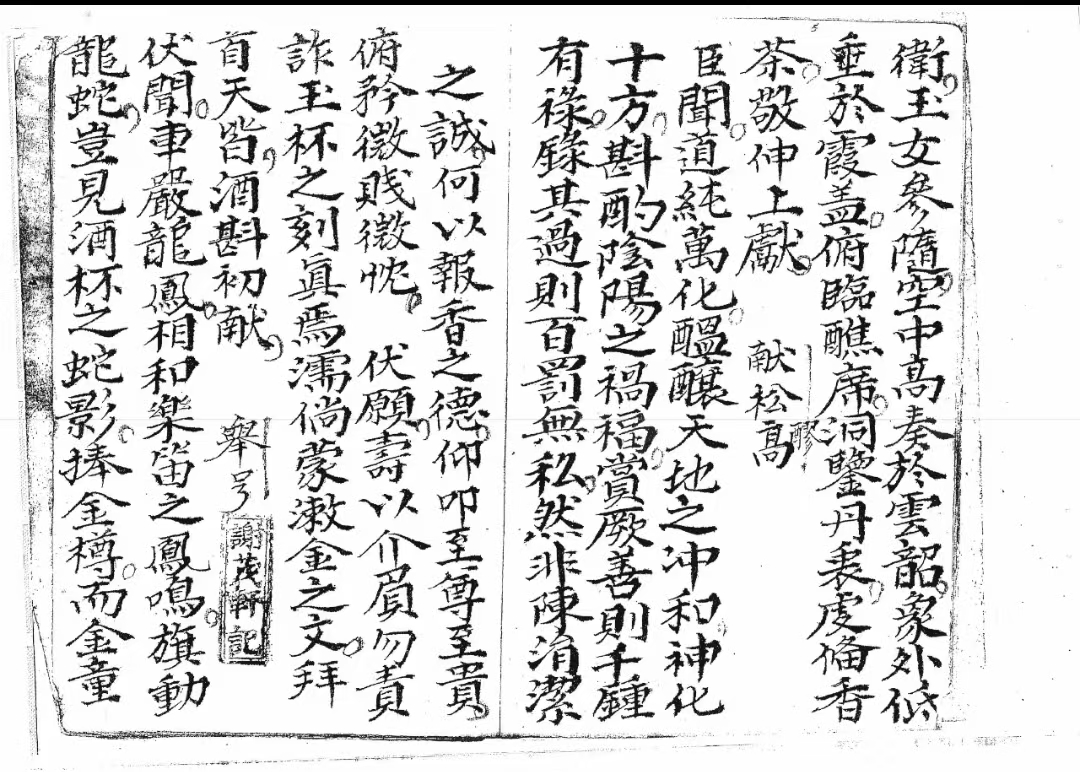 衛玉女參隨空中高奏於雲韶象外低
垂於霞盖俯臨醮席洞鑒丹衷虔偹香
茶敬伸上獻
献松醪
高
臣聞道純萬化醞釀天地之冲和神化
十方斟酌陰陽之禍福賞厥善則千鍾
有祿錄其過則百罰無私然非陳涓潔
之誠何以報香之德仰叩至尊至貴
俯矜微賤微忱 伏願壽以介眉勿責
詐玉杯之刻眞焉濡倘蒙漱金之文拜
首天皆酒斟初献
舉号
謝茂軒記
伏聞車嚴龍鳳相和樂笛之鳳鳴旗動
龍蛇豈見酒杯之蛇影捧金樽而金童